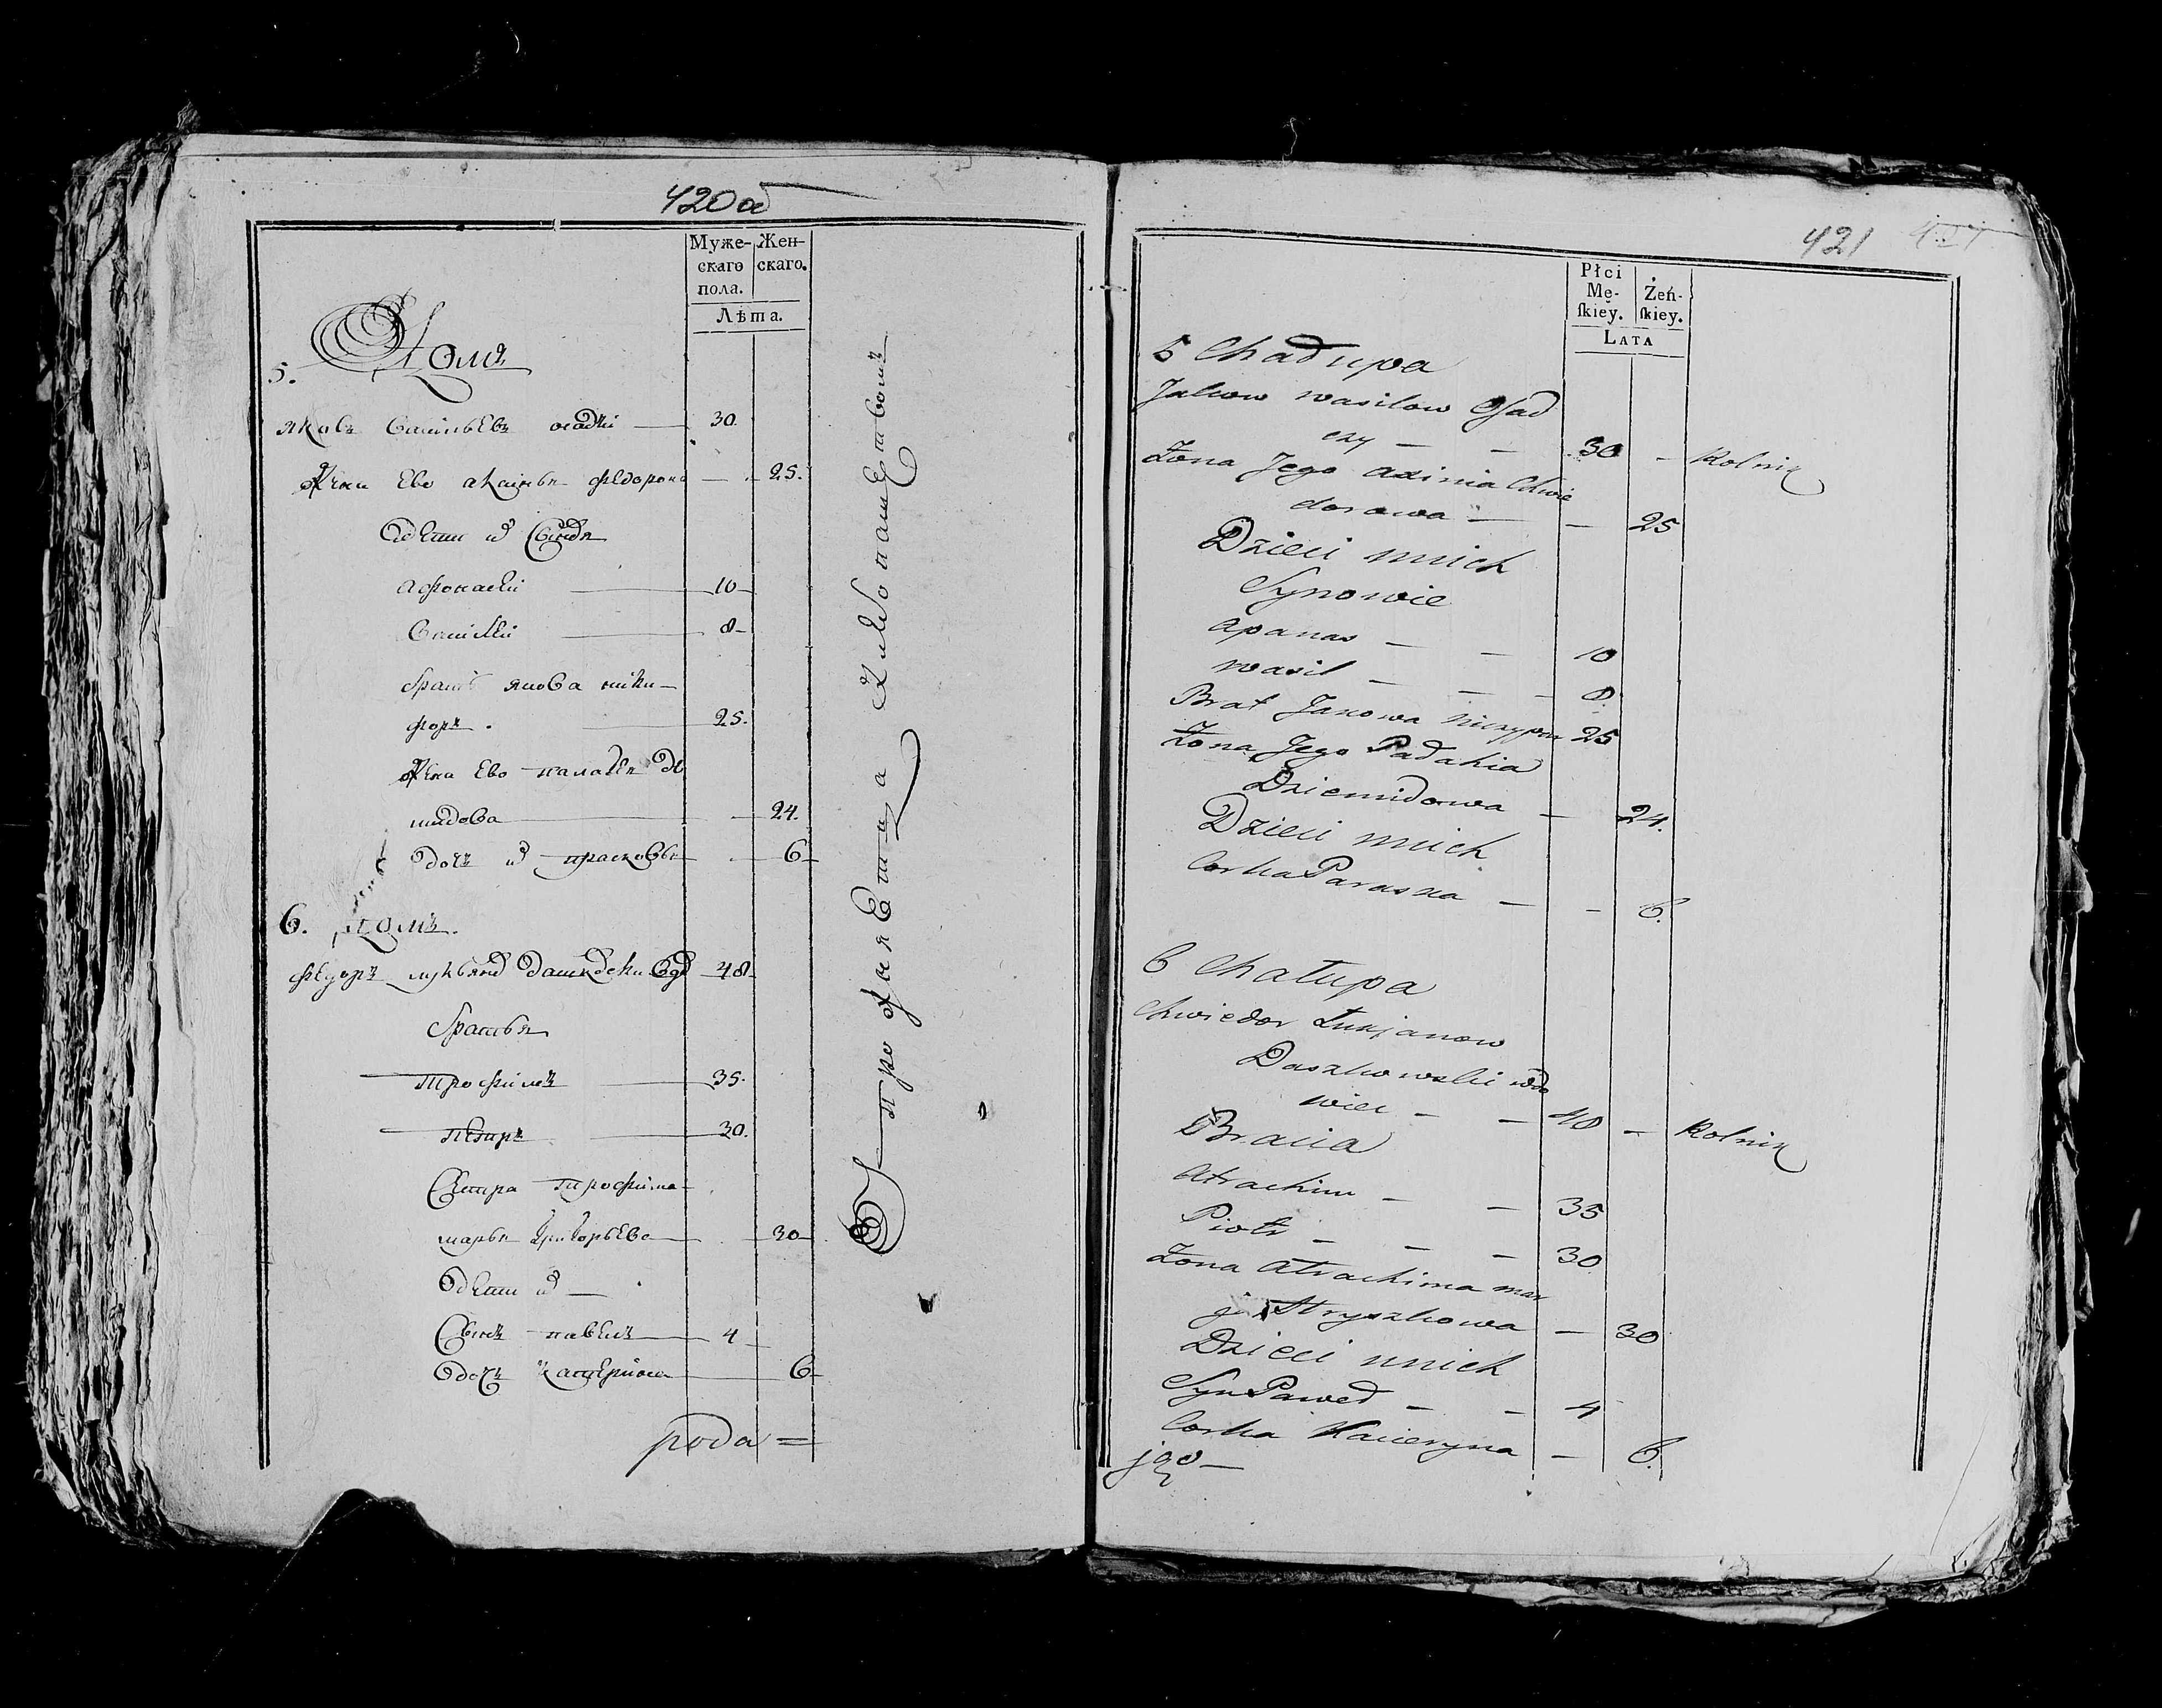 420 об
Муже-
скаго
пола.
Жен-
скаго.
Лѣта.
5. Домъ
яковъ Васильевъ осадчи 30.
Жена Ево аксинья федорова 25.
дети их Сыновья
афонасеи 10
Василеи 8
братъ якова ники-
форъ. 25.
Жена Ево палагея де
мидова 24.
дочь их прасковья 6
6. Домъ.
федоръ лукьянов дашковски вдо 48
братья
трофимъ 35.
петръ 30.
марья григорьева 30
дети их
Сынъ павелъ 4
дочь катерина 6
рода =
421
Płci
Mę-
ſkiey.
Żeń-
ſkiey.
LATA
5 Chałupa
Jakow wasilow Osad
czy 30 Rolnik
Żona Jego axinia Chwie
dorowa 25
Dzieci nnich
Synowie
apanas 10
wasil 8.
Brat Jakowa niczypar 25
Żona Jego Pałahia
Dziemidowa 24.
Dzieci nnich
Corka Paraska 6.
6 Chałupa
Chwiedor Łukjanow
Daszkowski wdo
wiec 48 Rolnik
Bracia
Atrachim 35
Piotr 30
Żona Atrachima mar
ja Hryszkowa 30
Dzieci nnich
Syn Paweł 4
Corka Kacieryna 6.